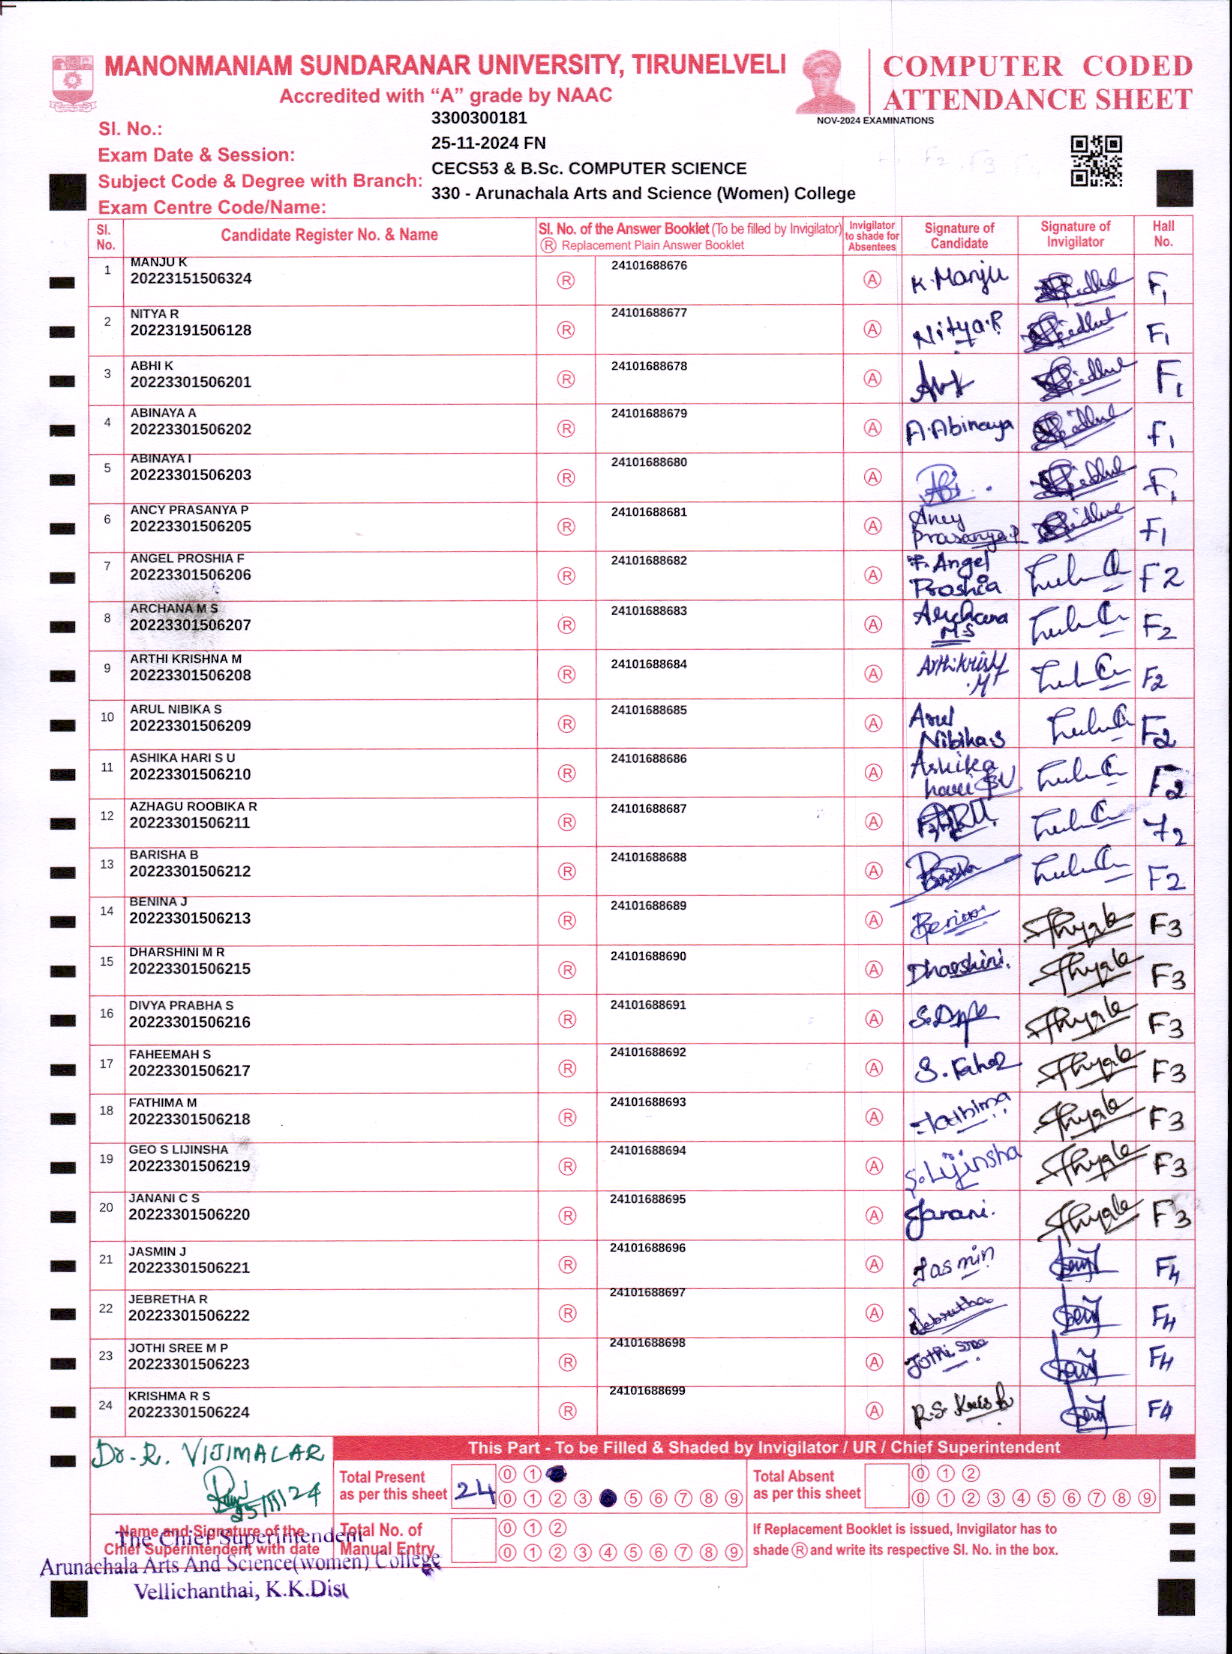 MANONMANIAM SUNDARANAR UNIVERSITY, TIRUNELVELI
Accredited with “A” grade by NAAC
COMPUTER CODED
ATTENDANCE SHEET
NOV-2024 EXAMINATIONS
Sl. No.: 3300300181
Exam Date & Session: 25-11-2024 FN
Subject Code & Degree with Branch: CECS53 & B.Sc. COMPUTER SCIENCE
Exam Centre Code/Name: 330 - Arunachala Arts and Science (Women) College
Sl. No. Candidate Register No. & Name Sl. No. of the Answer Booklet (To be filled by Invigilator) Ⓡ Replacement Plain Answer Booklet Invigilator to shade for Absentees Signature of Candidate Signature of Invigilator Hall No.
1 MANJU K
20223151506324 Ⓡ 24101688676 Ⓐ K. Manju F1
2 NITYA R
20223191506128 Ⓡ 24101688677 Ⓐ Nitya.R F1
3 ABHI K
20223301506201 Ⓡ 24101688678 Ⓐ F1
4 ABINAYA A
20223301506202 Ⓡ 24101688679 Ⓐ A.Abinaya F1
5 ABINAYA I
20223301506203 Ⓡ 24101688680 Ⓐ Abi. F1
6 ANCY PRASANYA P
20223301506205 Ⓡ 24101688681 Ⓐ Ancy Prasanya.P F1
7 ANGEL PROSHIA F
20223301506206 Ⓡ 24101688682 Ⓐ F. Angel Proshia F2
8 ARCHANA M S
20223301506207 Ⓡ 24101688683 Ⓐ Archana MS F2
9 ARTHI KRISHNA M
20223301506208 Ⓡ 24101688684 Ⓐ F2
10 ARUL NIBIKA S
20223301506209 Ⓡ 24101688685 Ⓐ Arul Nibika.S F2
11 ASHIKA HARI S U
20223301506210 Ⓡ 24101688686 Ⓐ Ashika hari SU F2
12 AZHAGU ROOBIKA R
20223301506211 Ⓡ 24101688687 Ⓐ F2
13 BARISHA B
20223301506212 Ⓡ 24101688688 Ⓐ F2
14 BENINA J
20223301506213 Ⓡ 24101688689 Ⓐ F3
15 DHARSHINI M R
20223301506215 Ⓡ 24101688690 Ⓐ Dharshini. F3
16 DIVYA PRABHA S
20223301506216 Ⓡ 24101688691 Ⓐ F3
17 FAHEEMAH S
20223301506217 Ⓡ 24101688692 Ⓐ F3
18 FATHIMA M
20223301506218 Ⓡ 24101688693 Ⓐ Fathima F3
19 GEO S LIJINSHA
20223301506219 Ⓡ 24101688694 Ⓐ S.Lijinsha F3
20 JANANI C S
20223301506220 Ⓡ 24101688695 Ⓐ Janani. F3
21 JASMIN J
20223301506221 Ⓡ 24101688696 Ⓐ Jasmin F4
22 JEBRETHA R
20223301506222 Ⓡ 24101688697 Ⓐ Jebretha F4
23 JOTHI SREE M P
20223301506223 Ⓡ 24101688698 Ⓐ Jothi sree F4
24 KRISHMA R S
20223301506224 Ⓡ 24101688699 Ⓐ F4
Dr. R. VIJIMALAR
25/11/24
Name and Signature of the
Chief Superintendent with date
The Chief Superintendent
Arunachala Arts And Science(women) College
Vellichanthai, K.K.Dist
This Part - To be Filled & Shaded by Invigilator / UR / Chief Superintendent
Total Present as per this sheet 24 0 1
0 1 2 3 5 6 7 8 9
Total Absent as per this sheet 0 1 2
0 1 2 3 4 5 6 7 8 9
Total No. of Manual Entry 0 1 2
0 1 2 3 4 5 6 7 8 9
If Replacement Booklet is issued, Invigilator has to
shade Ⓡ and write its respective Sl. No. in the box.